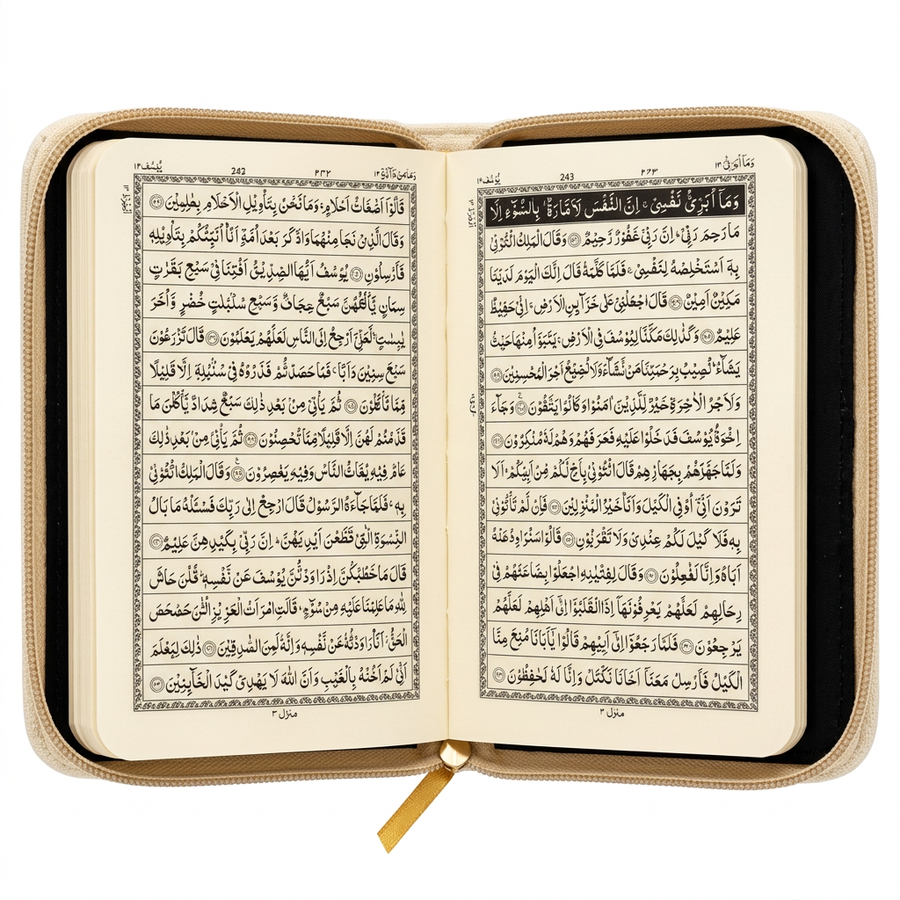 وَمَا مِنْ دَآبَّةٍ ١٢ ٢٤٢ 242 يُوْسُف ١٢
قَالُوْٓا اَضْغَاثُ اَحْلَامٍ ۚ وَمَا نَحْنُ بِتَاْوِيْلِ الْاَحْلَامِ بِعٰلِمِيْنَ ۝٤٤
وَقَالَ الَّذِيْ نَجَا مِنْهُمَا وَادَّكَرَ بَعْدَ اُمَّةٍ اَنَا اُنَبِّئُكُمْ بِتَاْوِيْلِهٖ
فَاَرْسِلُوْنِ ۝٤٥ يُوْسُفُ اَيُّهَا الصِّدِّيْقُ اَفْتِنَا فِيْ سَبْعِ بَقَرٰتٍ
سِمَانٍ يَّاْكُلُهُنَّ سَبْعٌ عِجَافٌ وَّسَبْعِ سُنْۢبُلٰتٍ خُضْرٍ وَّاُخَرَ
يٰبِسٰتٍ ۙ لَّعَلِّيْٓ اَرْجِعُ اِلَى النَّاسِ لَعَلَّهُمْ يَعْلَمُوْنَ ۝٤٦ قَالَ تَزْرَعُوْنَ
سَبْعَ سِنِيْنَ دَاَبًا ۚ فَمَا حَصَدْتُّمْ فَذَرُوْهُ فِيْ سُنْۢبُلِهٖٓ اِلَّا قَلِيْلًا
مِّمَّا تَاْكُلُوْنَ ۝٤٧ ثُمَّ يَاْتِيْ مِنْۢ بَعْدِ ذٰلِكَ سَبْعٌ شِدَادٌ يَّاْكُلْنَ مَا
قَدَّمْتُمْ لَهُنَّ اِلَّا قَلِيْلًا مِّمَّا تُحْصِنُوْنَ ۝٤٨ ثُمَّ يَاْتِيْ مِنْۢ بَعْدِ ذٰلِكَ
عَامٌ فِيْهِ يُغَاثُ النَّاسُ وَفِيْهِ يَعْصِرُوْنَ ۝٤٩ وَقَالَ الْمَلِكُ ائْتُوْنِيْ
بِهٖ ۚ فَلَمَّا جَآءَهُ الرَّسُوْلُ قَالَ ارْجِعْ اِلٰى رَبِّكَ فَسْـَٔلْهُ مَا بَالُ
النِّسْوَةِ الّٰتِيْ قَطَّعْنَ اَيْدِيَهُنَّ ۚ اِنَّ رَبِّيْ بِكَيْدِهِنَّ عَلِيْمٌ ۝٥٠
قَالَ مَا خَطْبُكُنَّ اِذْ رَاوَدْتُّنَّ يُوْسُفَ عَنْ نَّفْسِهٖ ۚ قُلْنَ حَاشَ
لِلّٰهِ مَا عَلِمْنَا عَلَيْهِ مِنْ سُوْٓءٍ ۚ قَالَتِ امْرَاَتُ الْعَزِيْزِ الْـٰٔنَ حَصْحَصَ
الْحَقُّ ۫ اَنَا رَاوَدْتُّهٗ عَنْ نَّفْسِهٖ وَاِنَّهٗ لَمِنَ الصّٰدِقِيْنَ ۝٥١ ذٰلِكَ لِيَعْلَمَ
اَنِّيْ لَمْ اَخُنْهُ بِالْغَيْبِ وَاَنَّ اللّٰهَ لَا يَهْدِيْ كَيْدَ الْخَآئِنِيْنَ ۝٥٢
منزل ٣
وَمَآ اُبَرِّئُ ١٣ ٢٤٣ 243 يُوْسُف ١٢
وَمَآ اُبَرِّئُ نَفْسِيْ ۚ اِنَّ النَّفْسَ لَاَمَّارَةٌۢ بِالسُّوْٓءِ اِلَّا
مَا رَحِمَ رَبِّيْ ۚ اِنَّ رَبِّيْ غَفُوْرٌ رَّحِيْمٌ ۝٥٣ وَقَالَ الْمَلِكُ ائْتُوْنِيْ
بِهٖٓ اَسْتَخْلِصْهُ لِنَفْسِيْ ۚ فَلَمَّا كَلَّمَهٗ قَالَ اِنَّكَ الْيَوْمَ لَدَيْنَا
مَكِيْنٌ اَمِيْنٌ ۝٥٤ قَالَ اجْعَلْنِيْ عَلٰى خَزَآئِنِ الْاَرْضِ ۚ اِنِّيْ حَفِيْظٌ
عَلِيْمٌ ۝٥٥ وَكَذٰلِكَ مَكَّنَّا لِيُوْسُفَ فِي الْاَرْضِ ۚ يَتَبَوَّاُ مِنْهَا حَيْثُ
يَشَآءُ ۚ نُصِيْبُ بِرَحْمَتِنَا مَنْ نَّشَآءُ وَلَا نُضِيْعُ اَجْرَ الْمُحْسِنِيْنَ ۝٥٦
وَلَاَجْرُ الْاٰخِرَةِ خَيْرٌ لِّلَّذِيْنَ اٰمَنُوْا وَكَانُوْا يَتَّقُوْنَ ۝٥٧ وَجَآءَ
اِخْوَةُ يُوْسُفَ فَدَخَلُوْا عَلَيْهِ فَعَرَفَهُمْ وَهُمْ لَهٗ مُنْكِرُوْنَ ۝٥٨
وَلَمَّا جَهَّزَهُمْ بِجَهَازِهِمْ قَالَ ائْتُوْنِيْ بِاَخٍ لَّكُمْ مِّنْ اَبِيْكُمْ ۚ اَلَا
تَرَوْنَ اَنِّيْٓ اُوْفِي الْكَيْلَ وَاَنَا خَيْرُ الْمُنْزِلِيْنَ ۝٥٩ فَاِنْ لَّمْ تَاْتُوْنِيْ
بِهٖ فَلَا كَيْلَ لَكُمْ عِنْدِيْ وَلَا تَقْرَبُوْنِ ۝٦٠ قَالُوْا سَنُرَاوِدُ عَنْهُ
اَبَاهُ وَاِنَّا لَفٰعِلُوْنَ ۝٦١ وَقَالَ لِفِتْيٰنِهِ اجْعَلُوْا بِضَاعَتَهُمْ فِيْ
رِحَالِهِمْ لَعَلَّهُمْ يَعْرِفُوْنَهَآ اِذَا انْقَلَبُوْٓا اِلٰٓى اَهْلِهِمْ لَعَلَّهُمْ
يَرْجِعُوْنَ ۝٦٢ فَلَمَّا رَجَعُوْٓا اِلٰٓى اَبِيْهِمْ قَالُوْا يٰٓاَبَانَا مُنِعَ مِنَّا
الْكَيْلُ فَاَرْسِلْ مَعَنَآ اَخَانَا نَكْتَلْ وَاِنَّا لَهٗ لَحٰفِظُوْنَ ۝٦٣
منزل ٣